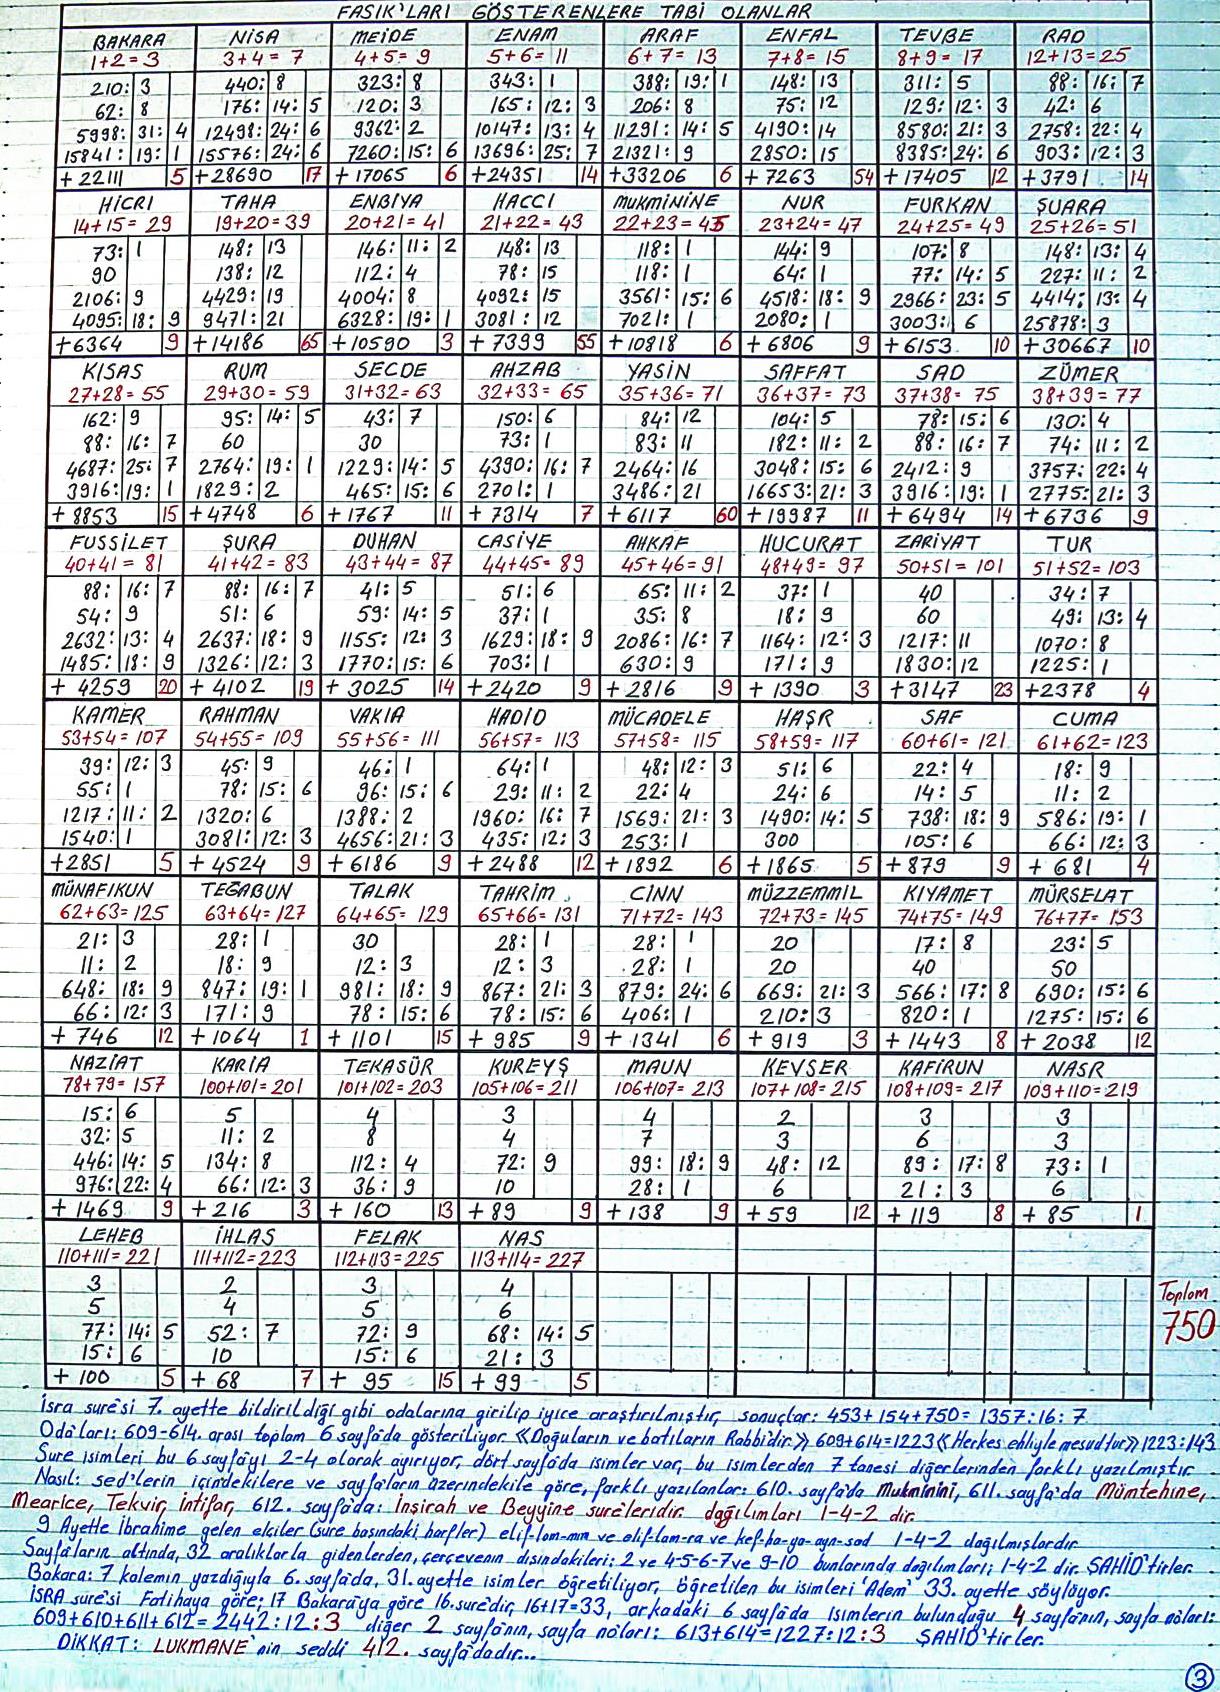 FASIK'LARI GÖSTERENLERE TABİ OLANLAR
BAKARA NİSA MEİDE ENAM ARAF ENFAL TEVBE RAD
1+2=3 3+4=7 4+5=9 5+6=11 6+7=13 7+8=15 8+9=17 12+13=25
210: 3 440: 8 323: 8 343: 1 388: 19: 1 148: 13 311: 5 88: 16: 7
62: 8 176: 14: 5 120: 3 165: 12: 3 206: 8 75: 12 129: 12: 3 42: 6
5998: 31: 4 12498: 24: 6 9362: 2 10147: 13: 4 11291: 14: 5 4190: 14 8580: 21: 3 2758: 22: 4
15841: 19: 1 15576: 24: 6 7260: 15: 6 13696: 25: 7 21321: 9 2850: 15 8385: 24: 6 903: 12: 3
+22111 5 +28690 17 +17065 6 +24351 14 +33206 6 +7263 54 +17405 12 +3791 14
HİCRİ TAHA ENBİYA HACCI MUKMİNİNE NUR FURKAN ŞUARA
14+15=29 19+20=39 20+21=41 21+22=43 22+23=45 23+24=47 24+25=49 25+26=51
73: 1 148: 13 146: 11: 2 148: 13 118: 1 144: 9 107: 8 148: 13: 4
90 138: 12 112: 4 78: 15 118: 1 64: 1 77: 14: 5 227: 11: 2
2106: 9 4429: 19 4004: 8 4092: 15 3561: 15: 6 4518: 18: 9 2966: 23: 5 4414: 13: 4
4095: 18: 9 9471: 21 6328: 19: 1 3081: 12 7021: 1 2080: 1 3003: 6 25878: 3
+6364 9 +14186 65 +10590 3 +7399 55 +10818 6 +6806 9 +6153 10 +30667 10
KISAS RUM SECDE AHZAB YASİN SAFFAT SAD ZÜMER
27+28=55 29+30=59 31+32=63 32+33=65 35+36=71 36+37=73 37+38=75 38+39=77
162: 9 95: 14: 5 43: 7 150: 6 84: 12 104: 5 78: 15: 6 130: 4
88: 16: 7 60 30 73: 1 83: 11 182: 11: 2 88: 16: 7 74: 11: 2
4687: 25: 7 2764: 19: 1 1229: 14: 5 4390: 16: 7 2464: 16 3048: 15: 6 2412: 9 3757: 22: 4
3916: 19: 1 1829: 2 465: 15: 6 2701: 1 3486: 21 16653: 21: 3 3916: 19: 1 2775: 21: 3
+8853 15 +4748 6 +1767 11 +7314 7 +6117 60 +19987 11 +6494 14 +6736 9
FUSSİLET ŞURA DUHAN CASİYE AHKAF HUCURAT ZARİYAT TUR
40+41=81 41+42=83 43+44=87 44+45=89 45+46=91 48+49=97 50+51=101 51+52=103
88: 16: 7 88: 16: 7 41: 5 51: 6 65: 11: 2 37: 1 40 34: 7
54: 9 51: 6 59: 14: 5 37: 1 35: 8 18: 9 60 49: 13: 4
2632: 13: 4 2637: 18: 9 1155: 12: 3 1629: 18: 9 2086: 16: 7 1164: 12: 3 1217: 11 1070: 8
1485: 18: 9 1326: 12: 3 1770: 15: 6 703: 1 630: 9 171: 9 1830: 12 1225: 1
+4259 20 +4102 19 +3025 14 +2420 9 +2816 9 +1390 3 +3147 23 +2378 4
KAMER RAHMAN VAKIA HADİD MÜCADELE HAŞR SAF CUMA
53+54=107 54+55=109 55+56=111 56+57=113 57+58=115 58+59=117 60+61=121 61+62=123
39: 12: 3 45: 9 46: 1 64: 1 48: 12: 3 51: 6 22: 4 18: 9
55: 1 78: 15: 6 96: 15: 6 29: 11: 2 22: 4 24: 6 14: 5 11: 2
1217: 11: 2 1320: 6 1388: 2 1960: 16: 7 1569: 21: 3 1490: 14: 5 738: 18: 9 586: 19: 1
1540: 1 3081: 12: 3 4656: 21: 3 435: 12: 3 253: 1 300 105: 6 66: 12: 3
+2851 5 +4524 9 +6186 9 +2488 12 +1892 6 +1865 5 +879 9 +681 4
MÜNAFIKUN TEGABUN TALAK TAHRİM CİNN MÜZZEMMİL KIYAMET MÜRSELAT
62+63=125 63+64=127 64+65=129 65+66=131 71+72=143 72+73=145 74+75=149 76+77=153
21: 3 28: 1 30 28: 1 28: 1 20 17: 8 23: 5
11: 2 18: 9 12: 3 12: 3 28: 1 20 40 50
648: 18: 9 847: 19: 1 981: 18: 9 867: 21: 3 879: 24: 6 669: 21: 3 566: 17: 8 690: 15: 6
66: 12: 3 171: 9 78: 15: 6 78: 15: 6 406: 1 210: 3 820: 1 1275: 15: 6
+746 12 +1064 1 +1101 15 +985 9 +1341 6 +919 3 +1443 8 +2038 12
NAZİAT KARİA TEKASÜR KUREYŞ MAUN KEVSER KAFİRUN NASR
78+79=157 100+101=201 101+102=203 105+106=211 106+107=213 107+108=215 108+109=217 109+110=219
15: 6 5 4 3 4 2 3 3
32: 5 11: 2 8 4 7 3 6 3
446: 14: 5 134: 8 112: 4 72: 9 99: 18: 9 48: 12 89: 17: 8 73: 1
976: 22: 4 66: 12: 3 36: 9 10 28: 1 6 21: 3 6
+1469 9 +216 3 +160 13 +89 9 +138 9 +59 12 +119 8 +85 1
LEHEB İHLAS FELAK NAS
110+111=221 111+112=223 112+113=225 113+114=227
3 2 3 4
5 4 5 6
77: 14: 5 52: 7 72: 9 68: 14: 5
15: 6 10 15: 6 21: 3
+100 5 +68 7 +95 15 +99 5
Toplam
750
İsra suresi 7. ayette bildirildiği gibi odalarına girilip iyice araştırılmıştır, sonuçlar: 453+154+750=1357:16:7
Odaları: 609-614. arası toplam 6 sayfada gösteriliyor «Doğuların ve batıların Rabbidir» 609+614=1223 «Herkes ehliyle mesuddur» 1223:143
Sure isimleri bu 6 sayfayı 2-4 olarak ayırıyor, dört sayfada isimler var, bu isimlerden 7 tanesi diğerlerinden farklı yazılmıştır
Nasıl: sed'lerin içindekilere ve sayfaların üzerindekile göre, farklı yazılanlar: 610. sayfada Mukminini, 611. sayfada Mümtehine,
Mearice, Tekvir, İntifar, 612. sayfada: İnşirah ve Beyyine sureleridir. dağılımları 1-4-2 dir.
9 Ayette İbrahime gelen elçiler (sure başındaki harfler) elif-lam-mim ve elif-lam-ra ve kef-ha-ya-ayn-sad 1-4-2 dağılmışlardır
Sayfaların altında, 32 aralıklarla gidenlerden, çerçevenin dışındakileri: 2 ve 4-5-6-7 ve 9-10 bunlarında dağılımları; 1-4-2 dir. ŞAHİD'tirler.
Bakara: 7 kalemin yazdığıyla 6. sayfada, 31. ayette isimler öğretiliyor, öğretilen bu isimleri 'Adem' 33. ayette söylüyor.
İSRA suresi Fatihaya göre; 17 Bakaraya göre 16. suredir, 16+17=33, arkadaki 6 sayfada isimlerin bulunduğu 4 sayfanın, sayfa noları:
609+610+611+612=2442:12:3 diğer 2 sayfanın, sayfa noları: 613+614=1227:12:3 ŞAHİD'tirler.
DİKKAT: LUKMANE'nin seddi 412. sayfadadır...
3